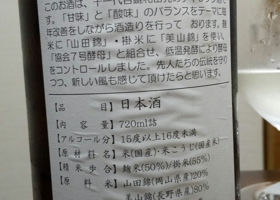 このお酒は、十一代目蔵
す。「甘味」と「酸味」のバランスをテーマに毎
年改善をしながら酒造りを行って おります。麹
米に「山田錦」・掛米に「美山錦」を使い
「協会7号酵母」と組合せ、低温発酵により酵母
をコントロールしました。先人たちの伝統を守り
つつ、新しい風も感じて頂けたらと思います。
【品目】日本酒
【内容量】720ml詰
【アルコール分】15度以上16度未満
【原材料名】米(国産)・米こうじ(国産)
【精米歩合】麹米(50%)/掛米(55%)
【原料米】山田錦(岡山県産)20%
美山錦(長野県産)80%